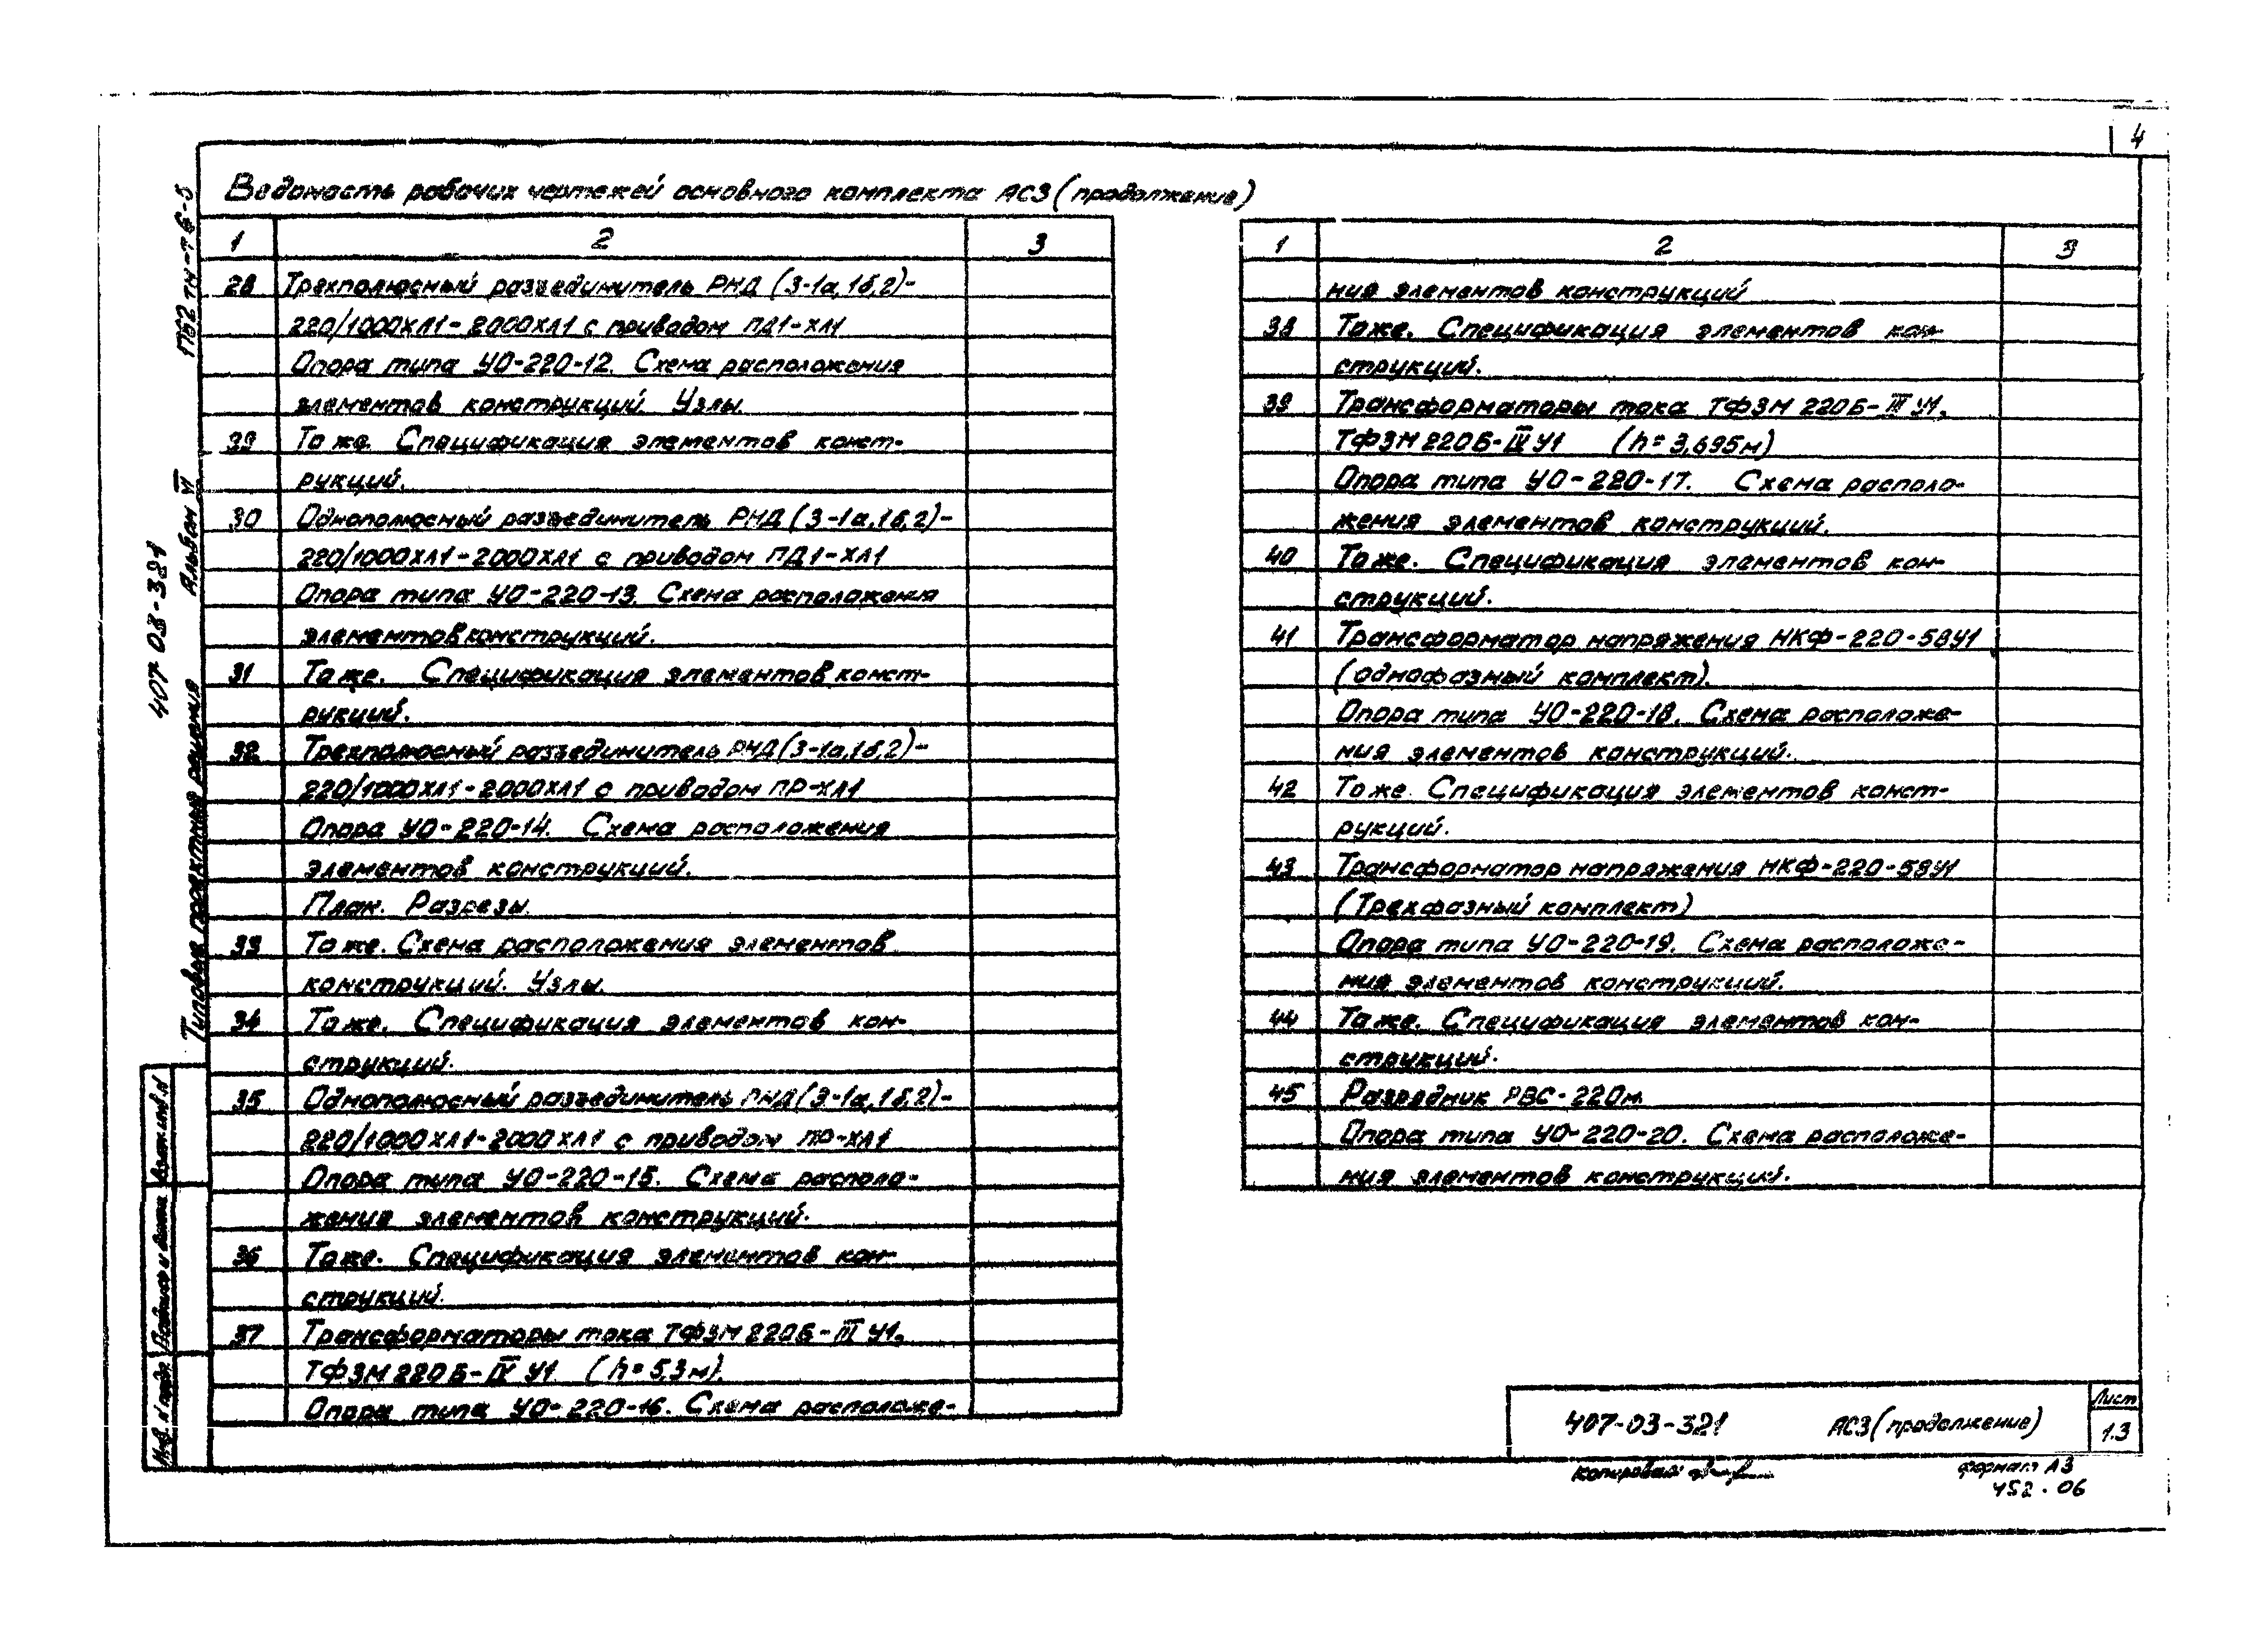 4
Ведомость рабочих чертежей основного комплекта АС3 (продолжение)
1 2 3
28 Трехполюсный разъединитель РНД (3-1а, 1б, 2)-
220/1000ХЛ1-2000ХЛ1 с приводом ПД1-ХЛ1
Опора типа УО-220-12. Схема расположения
элементов конструкций Узлы
То же. Спецификация элементов конст-
рукций.
30 Однополюсный разъединитель РНД (3-1а, 1б, 2)-
220/1000ХЛ1-2000ХЛ1 с приводом ПД1-ХЛ1
Опора типа УО-220-13. Схема расположения
элементов конструкций.
31 То же. Спецификация элементов конст-
рукций.
32 Трехполюсный разъединитель РНД (3-1а, 1б, 2)-
220/1000ХЛ1-2000ХЛ1 с приводом ПР-ХЛ1
Опора УО-220-14. Схема расположения
элементов конструкций.
План. Разрезы.
33 То же. Схема расположения элементов
конструкций. Узлы.
34 То же. Спецификация элементов кон-
струкций.
35 Однополюсный разъединитель РНД (3-1а, 1б, 2)-
220/1000ХЛ1-2000ХЛ1 с приводом ПР-ХЛ1
Опора типа УО-220-15. Схема располо-
жения элементов конструкций.
36 То же. Спецификация элементов кон-
струкций.
37 Трансформаторы тока ТФЗМ 220Б-III У1,
ТФЗМ 220Б-IV У1 (h=5,3м).
Опора типа УО-220-16. Схема расположе-
1 2 3
ния элементов конструкций
38 То же. Спецификация элементов кон-
струкций.
39 Трансформаторы тока ТФЗМ 220Б-III У1,
ТФЗМ 220Б-IV У1 (h=3,695м)
Опора типа УО-220-17. Схема располо-
жения элементов конструкций.
40 То же. Спецификация элементов кон-
струкций.
41 Трансформатор напряжения НКФ-220-58У1
(однофазный комплект).
Опора типа УО-220-18. Схема расположе-
ния элементов конструкций.
42 То же. Спецификация элементов конст-
рукций.
43 Трансформатор напряжения НКФ-220-58У1
(Трехфазный комплект)
Опора типа УО-220-19. Схема расположе-
ния элементов конструкций.
44 То же. Спецификация элементов кон-
струкций.
45 Разрядник РВС-220м
Опора типа УО-220-20. Схема расположе-
ния элементов конструкций.
407-03-321 АС3 (продолжение)
Лист
1.3
Копировал
формат А3
452.06
Типовые проектные решения
407-03-321
Альбом VI
1762 тм-т6-5
Взам. инв. N
Подпись и дата
Инв. N подл.